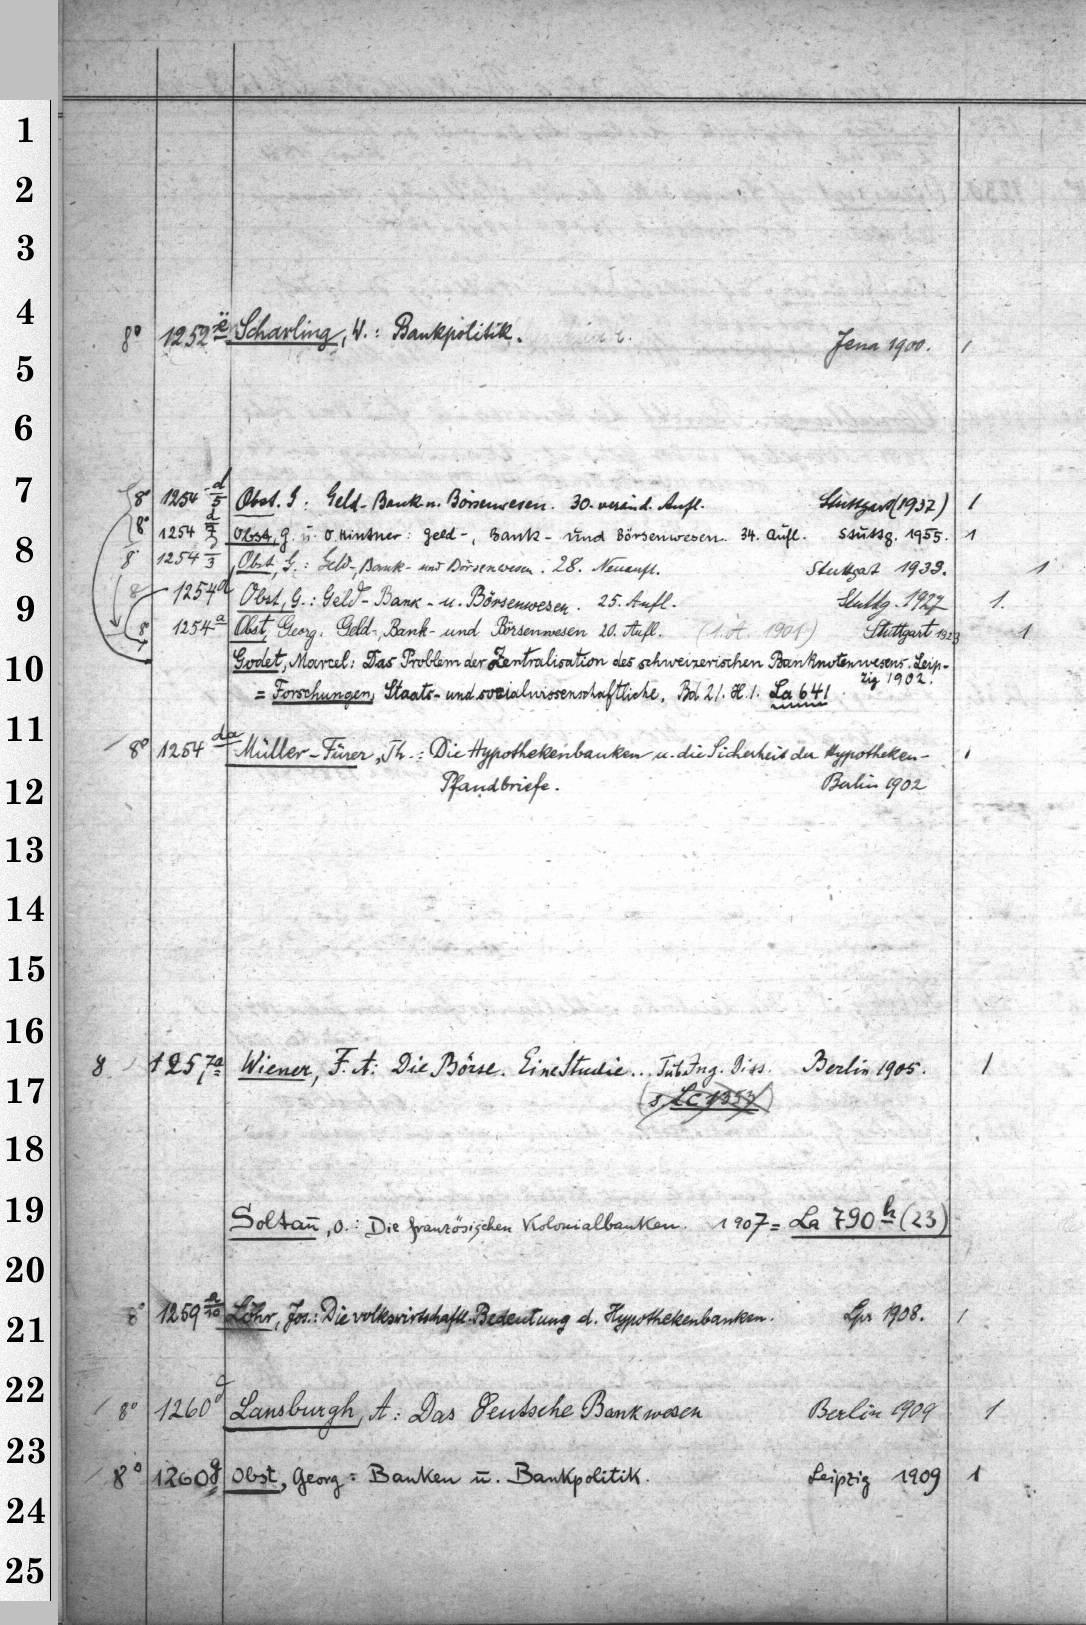 1
2
3
4
8° 1252 ë Scharling, W.: Bankpolitik. Jena 1900. 1
5
6
7
8° 1254 d/5 Obst. G: Geld- Bank u. Börsenwesen. 30. veränd. Aufl. Stuttgard (1937) 1
8° 1254 d/7 Obst, G. u. O. Hintner: Geld-, Bank- und Börsenwesen. 34. Aufl. Stuttg. 1955. 1
8
8° 1254 d/3 Obst, G.: Geld-, Bank- und Börsenwesen. 28. Neuaufl. Stuttgart 1933. 1
8 1254 d Obst, G.: Geld- Bank- u. Börsenwesen. 25. Aufl. Stuttg. 1927 1.
9
8° 1254 a Obst, Georg. Geld-, Bank- und Börsenwesen 20. Aufl. (1. A. 1901) Stuttgart 1923 1
10
Godet, Marcel: Das Problem der Zentralisation des schweizerischen Banknotenwesens. Leip-
zig 1902.
= Forschungen, Staats- und sozialwissenschaftliche, Bd 21. H. 1. La 641.
11
8° 1254 da Müller-Fürer, Th.: Die Hypothekenbanken u. die Sicherheit der Hypotheken- 1
12
Pfandbriefe. Berlin 1902
13
14
15
16
8 1257 a Wiener, F. A: Die Börse. Eine Studie... Tüb. Ing. Diss. Berlin 1905. 1
17
(s. Lc 1353)
18
19
Soltau, O.: Die französischen Kolonialbanken. 1907 = La 790 h (23)
20
8° 1259 a/10 Löhr, Jos.: Die volkswirtschaftl. Bedeutung d. Hypothekenbanken. Lpz 1908. 1
21
22
8° 1260 d Lansburgh, A.: Das deutsche Bankwesen Berlin 1909 1
23
8° 1260 g Obst, Georg: Banken u. Bankpolitik. Leipzig 1909 1
24
25